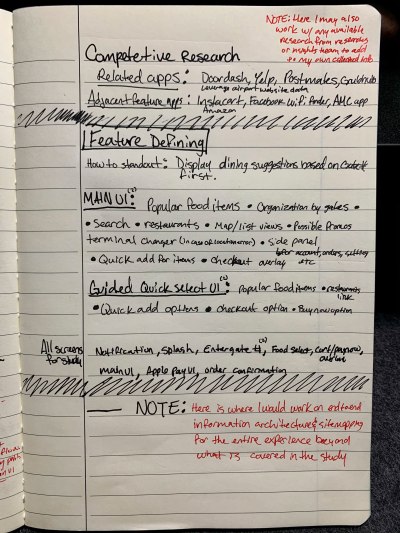 NOTE: Here I may also
work w/ any available
research from research
or insights team to add
to my own collected info
Competetive Research
Related apps: Doordash, Yelp, Postmates, Grubhub
Leverage airport website data
Adjacent feature apps: Instacart, Facebook Wifi finder, AMC app
Amazon
Feature Defining
How to standout: Display dining suggestions based on Gate #
first.
MAIN UI: Popular food items • Organization by gates •
• Search • restaurants • Map/list views • Possible Promos
terminal changer (in case of location error) • side panel
for account, orders, setting
• Quick add for items • checkout overlay ETC
Guided Quick Select UI: Popular food items • restaurants
link
• Quick add options • checkout option • Buy now option
All screens
for study
Notification, splash, Enter gate #, Food select, cart/paynow,
overlay
main UI, Apple Pay UI, order confirmation
— NOTE: Here is where I would work on end to end
information architecture & sitemapping
for the entire experience beyond
what is covered in the study